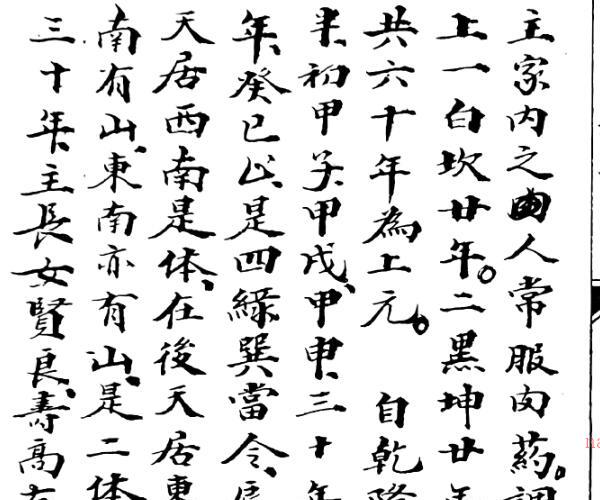 主家内之人常服肉药。調
上一白坎廿年。二黑坤廿年
共六十年為上元。 自乾隆
半初甲子、甲戌、甲申、三十年
年、癸巳止、是四綠巽當令、
天居西南是体、在後天居東
南有山、東南亦有山、是二体
三十年、主長女賢良、壽高